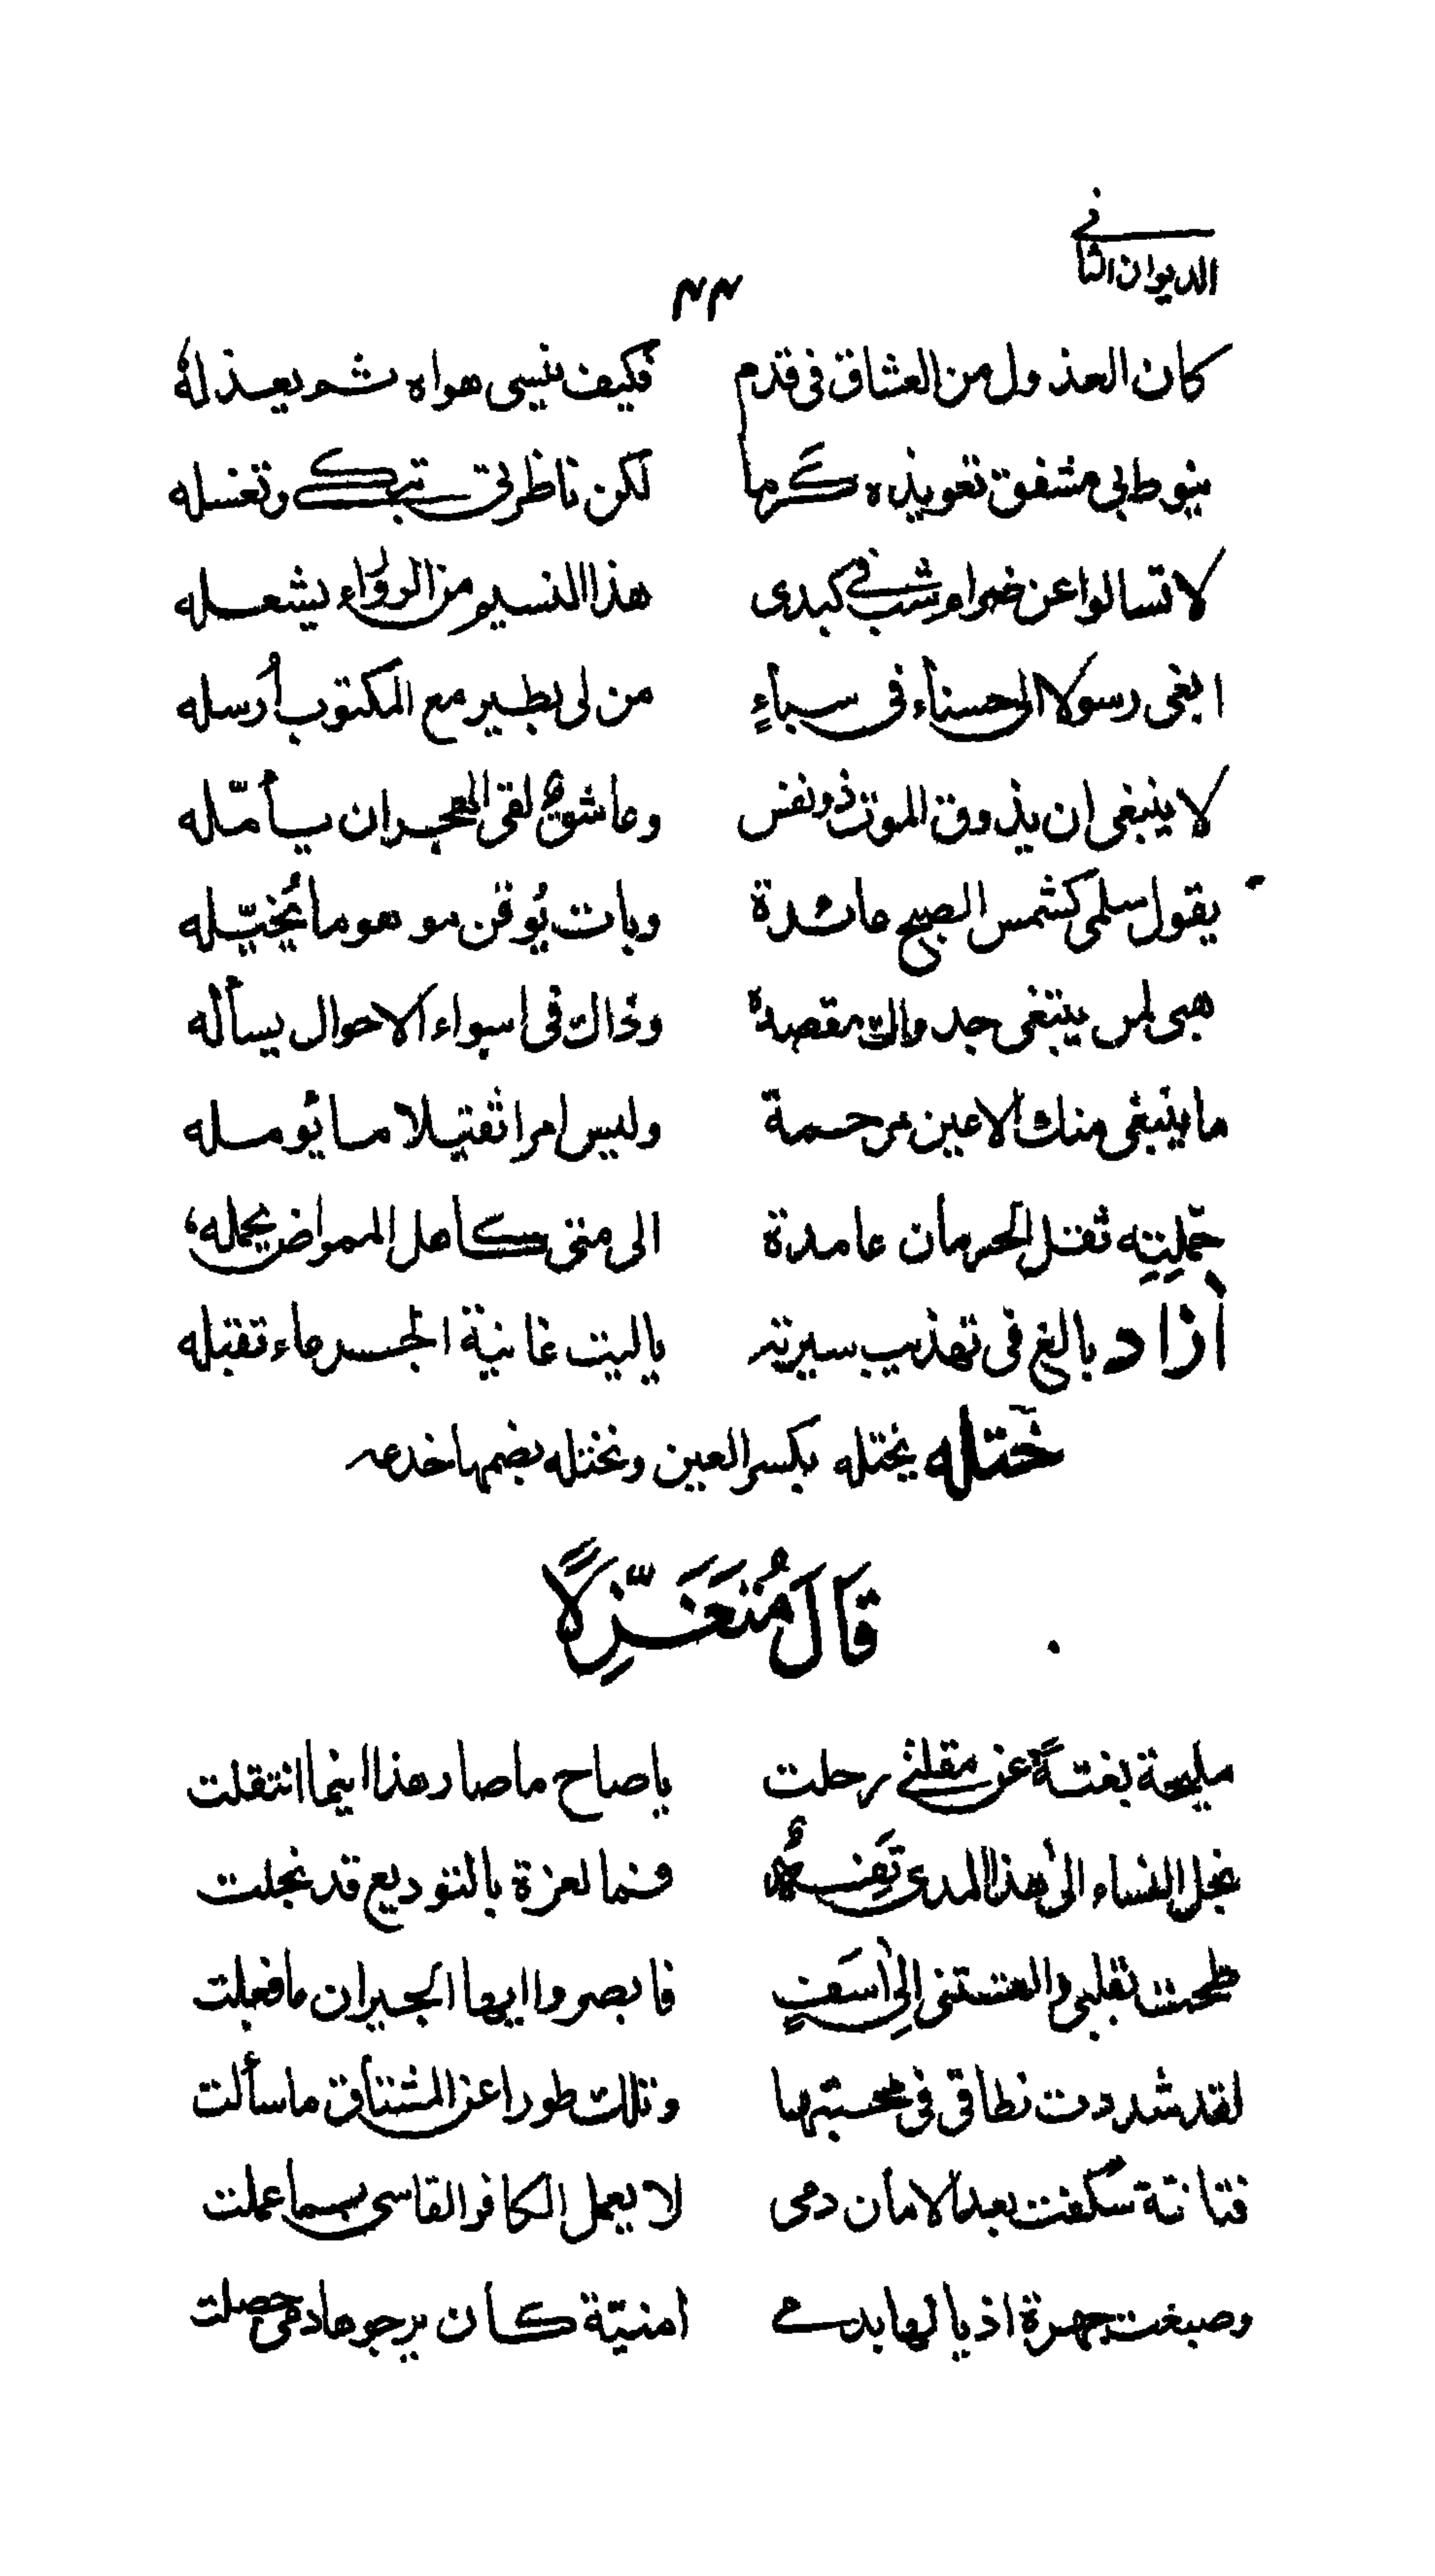 الديوان الثاني
٤٤
كان العذول من العشاق في قدم فكيف ينسى هواه ثم يعذله
ينوط بي مشفق تعويذه كرما لكن ناظرتي تبكي وتغسله
لا تسالوا عن ضرام شب في كبدى هذا النسيم من الروراء يشعله
ابغى رسولا الى حسناء فى سباءٍ من لى بطير مع المكتوب أرسله
لا ينبغى ان يذوق الموت ذو نفس وعاشق لقى الهجران يأمّله
يقول سلمى كشمس الصبح عائدة وبات يُوقن موهوما يُخيّله
هبى لمن يبتغى جدواك مقصده وذاك فى اسواء الاحوال يسأله
ما ينبغى منك الا عين مرحمة وليس امرا ثقيلا ما يؤمله
حمّلتِنِه ثقل الحرمان عامدة الى متى كاهل الممراض يحمله
أزاد بالغ فى تهذيب سيرته ياليت غانية الجرعاء تقبله
ختله يختله بكسر العين ويختله بضمها خدعه
قَالَ مُتَغَزِّلًا
مليحة بغتةً عن مقلتي رحلت يا صاح ما صار هذا اينما انتقلت
بخل النساء الى هذا المدى فما لعزة بالتوديع قد بخلت
بقلبى والعستنى الى أسَفٍ فابصروا ايها الجيران ما فعلت
لقد شددت نطاقى فى محبتها وتلك طورا عن المشتاق ما سألت
فتانة سفكت بعد الامان دمى لا يعمل الكافر القاسى بما عملت
وصبغت جهرة اذيالها بدمي امنيّة كان يرجوها دمى حصلت